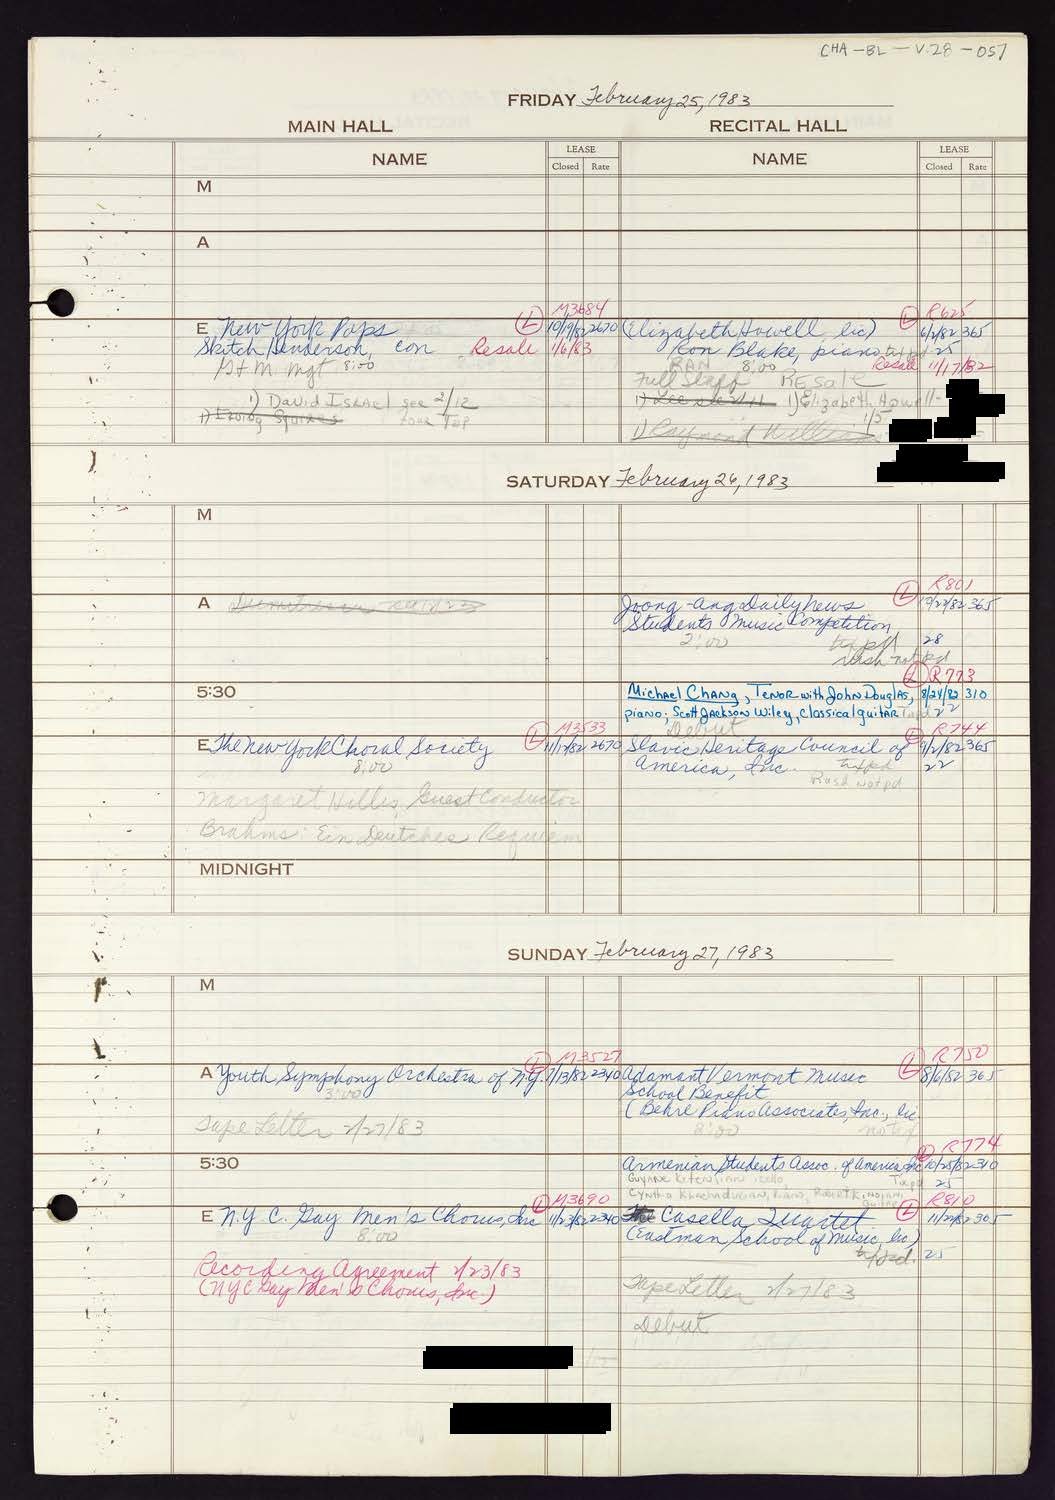 CHA-BL-V.28-057
FRIDAY February 25, 1983
MAIN HALL RECITAL HALL
NAME LEASE Closed Rate NAME LEASE Closed Rate
M
A
M3684 R625
E New York Pops (L) 10/19/82 2670 (Elizabeth Howell, lic) (L) 6/2/82 365
Skitch Henderson, con Resale 1/6/83 Ron Blake, piano 25
8:00 RAN 8:00 Resale 11/17/82
Full Staff Resale
1) David Israel see 2/12 1) Elizabeth Howell-
1) Irving Squires four top 1/5
1) Raymond
SATURDAY February 26, 1983
M
R801
A Joong-ang Daily News (L) 365
Students Music Competition
2:00 txpd 28
not pd
(L) R773
5:30 Michael Chang, Tenor with John Douglas, 8/24/82 310
piano; Scott Jackson Wiley, classical guitar Txpd 22
M3533 Debut R744
E The New York Choral Society (L) 11/17/82 2670 Slavic Heritage Council of (L) 9/2/82 365
8:00 America, Inc. txpd 22
Rush not pd
Margaret Hillis, Guest Conductor
Brahms: Ein Deutches Requiem
MIDNIGHT
SUNDAY February 27, 1983
M
M3527 R750
A Youth Symphony Orchestra of N.Y. (L) 7/13/82 2340 Adamant Vermont Music (L) 8/6/82 365
3:00 School Benefit
(Behre Piano Associates, Inc., lic
Tape Letter 2/27/83 2:00 no txpd
R774
5:30 Armenian Students Assoc. of America Inc (L) 10/25/82 310
cello, Txpd 25
Cynthia Khachadurian, Piano, Robert
M3690 guitar R810
E N.Y.C. Gay Men's Chorus, Inc (L) 11/23/82 2340 The Casella Quartet (L) 11/29/82 305
8:00 (Eastman School of Music, lic)
txpd. 25
Recording Agreement 2/23/83
(NYC Gay Men's Chorus, Inc.) Tape Letter 2/27/83
Debut